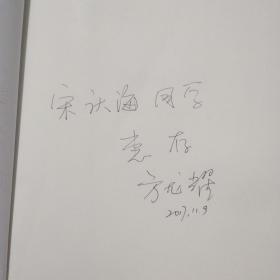 宋沃海同学
惠存
方龙耀
2017.11.9